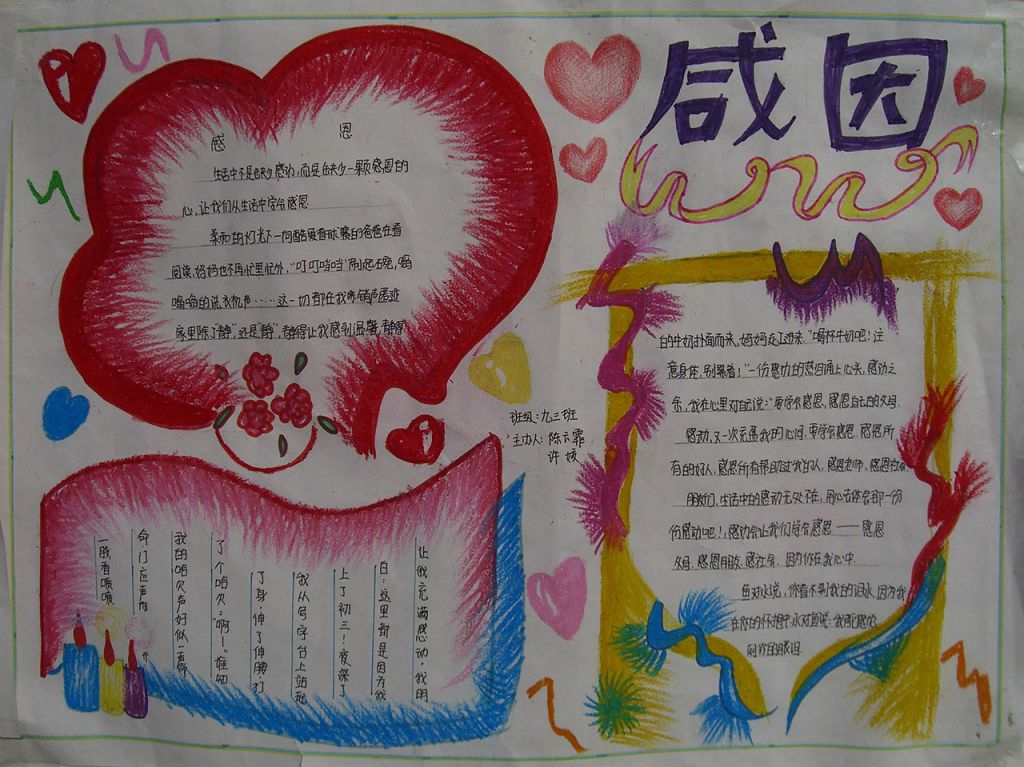 感恩
感 恩
生活中不是缺少感动,而是缺少一颗感恩的
心,让我们从生活中学会感恩
柔和的灯光下一向酷爱看球赛的爸爸在看
阅读,妈妈也不再忙里忙外,“叮叮咚当”
嗡嗡的洗衣机声……这一切都在我
家里除了“静”,还是“静”,静得让我感到温馨,静得
让我充满感动。我明
白:这里都是因为我
上了初三!夜深了
我从写字台上站起
了身,伸了伸腰,打
了个哈欠:“啊~”谁知
我的哈欠声好似一声
命门应声而开
一股香喷喷
的牛奶扑面而来,妈妈走了进来“喝杯牛奶吧!注
意身体,别累着!”一份感动的热泪涌上心头,感动之
余,我在心里对自己说:“要学会感恩,感恩自己的父母
感动,又一次充盈我的心间,要学会感恩,感恩所
有的好人,感恩所有帮助过我的人,感恩老师,感恩
朋友们,生活中的感动无处不在,用心去体会那一份
份感动吧!,感动会让我们学会感恩——感恩
父母,感恩朋友,感恩社会,因为你在我心中.
鱼对水说,你看不到我的泪水,因为我
在你的怀抱中水对鱼说:我能感觉
到你的眼泪
班级:九三班
主办人:陈云霏
许媛